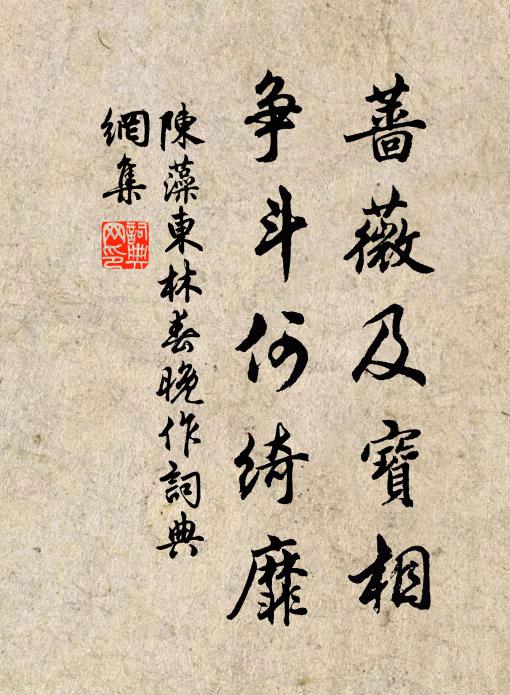 蔷薇及寶相
争斗何綺靡
陳藻東林春晚作詞典
網集
詞典
网印